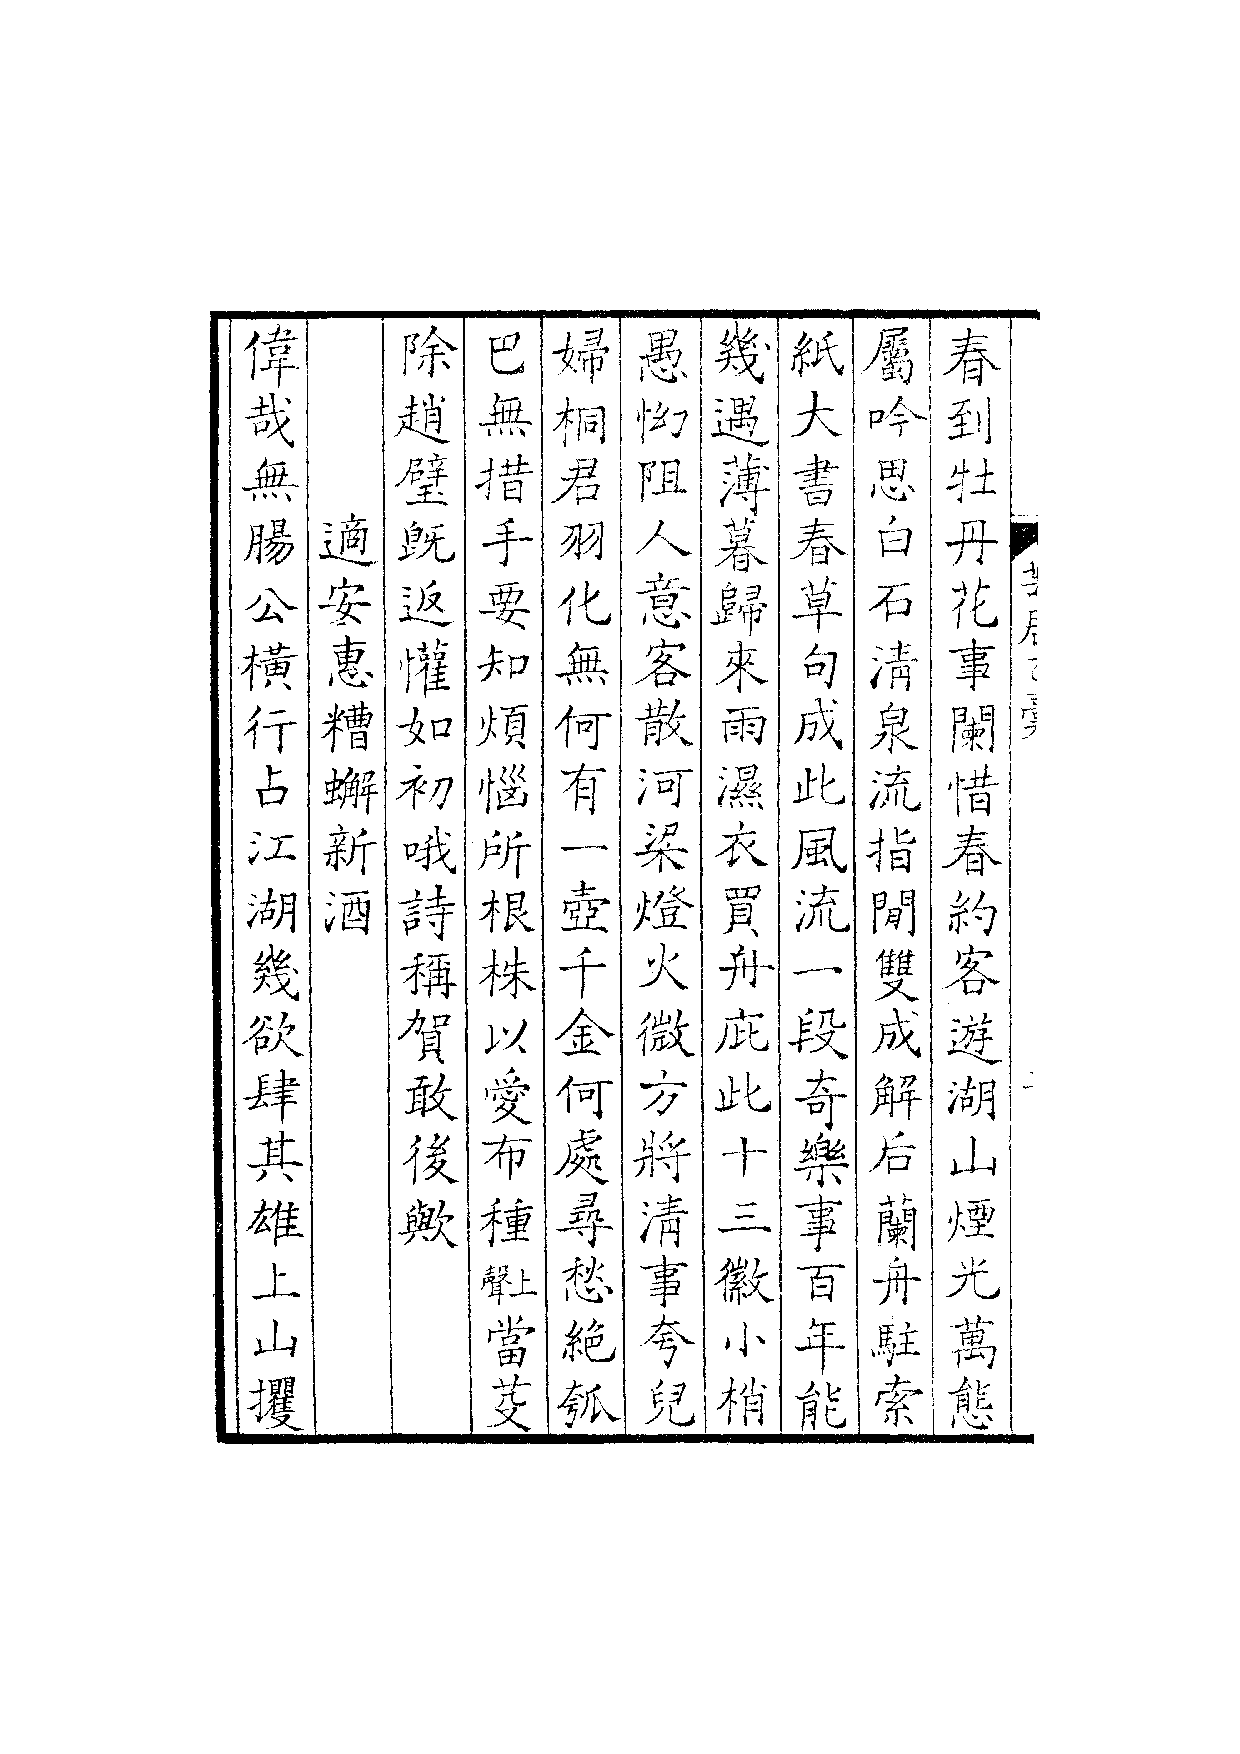 春到牡丹花事闌惜春約客遊湖山煙光萬態
屬吟思白石淸泉流指閒雙成解后蘭舟駐索
紙大書春草句成此風流一段奇樂事百年能
幾遇薄暮歸來雨濕衣買舟庇此十三徽小梢
愚怮阻人意客散河梁燈火微方將淸事夸兒
婦桐君羽化無何有一壺千金何處尋愁絕瓠
巴無措手要知煩惱所根株以愛布種上聲當芟
除趙璧旣返懽如初哦詩稱賀敢後歟
適安惠糟蠏新酒
偉哉無腸公橫行占江湖幾欲肆其雄上山攫